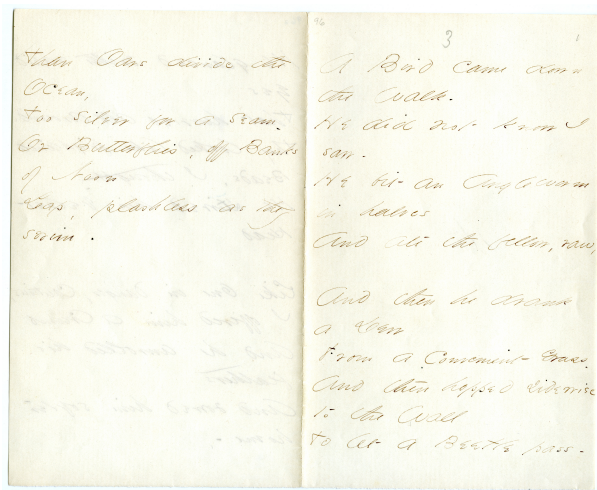 than Oars divide the
Ocean,
too silver for a seam.
Or Butterflies, off Banks
of Noon
Leap, plashless as they
swim.
3
A Bird came down
the Walk.
He did not know I
saw.
He bit an Angleworm
in halves
And ate the fellow, raw,
And then he drank
a Dew
From a Convenient Grass.
And then hopped sidewise
to the Wall
to let a Beetle pass.